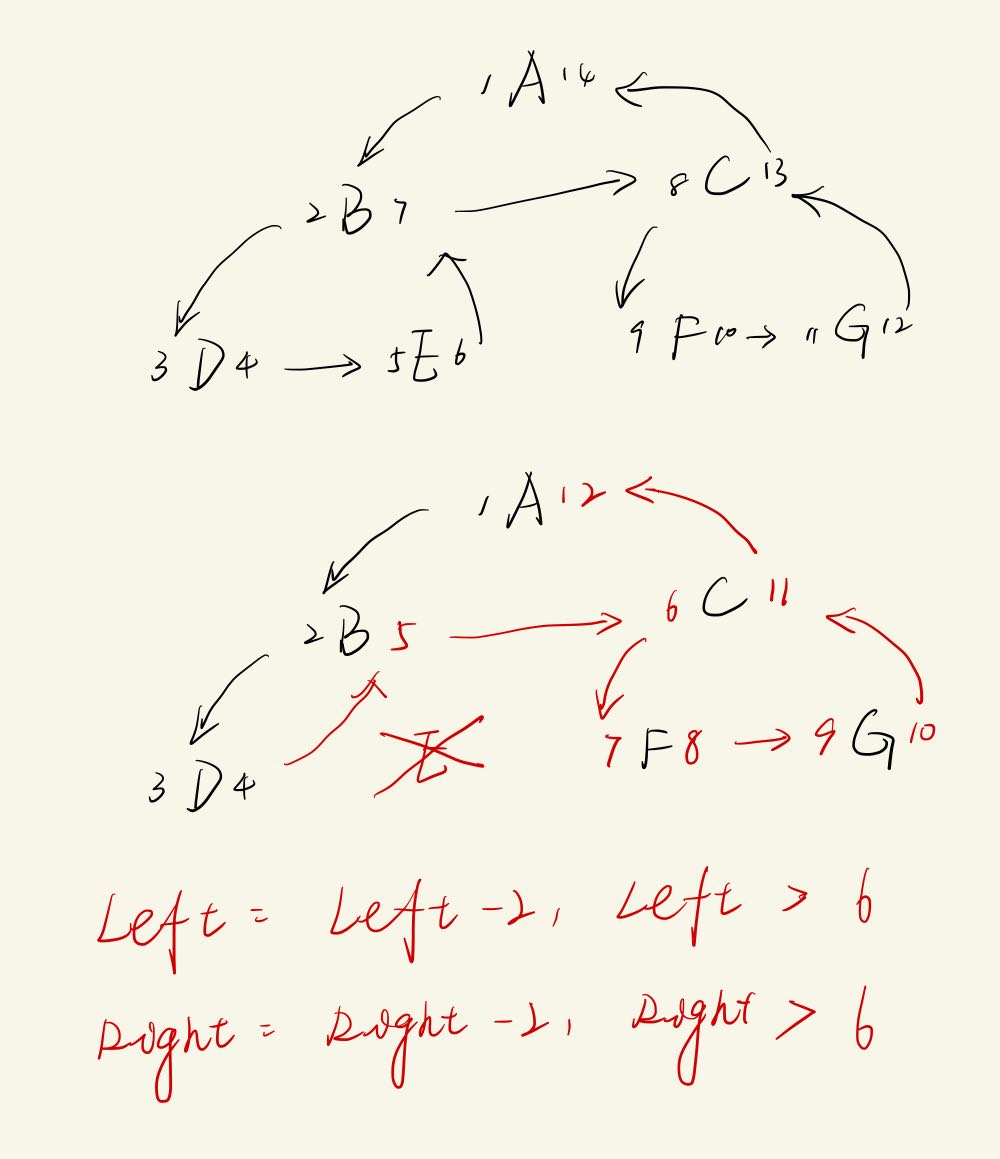 1 A 14
2 B 7 8 C 13
3 D 4 5 E 6 9 F 10 11 G 12
1 A 12
2 B 5 6 C 11
3 D 4 E 7 F 8 9 G 10
Left = Left - 2, Left > 6
Right = Right - 2, Right > 6